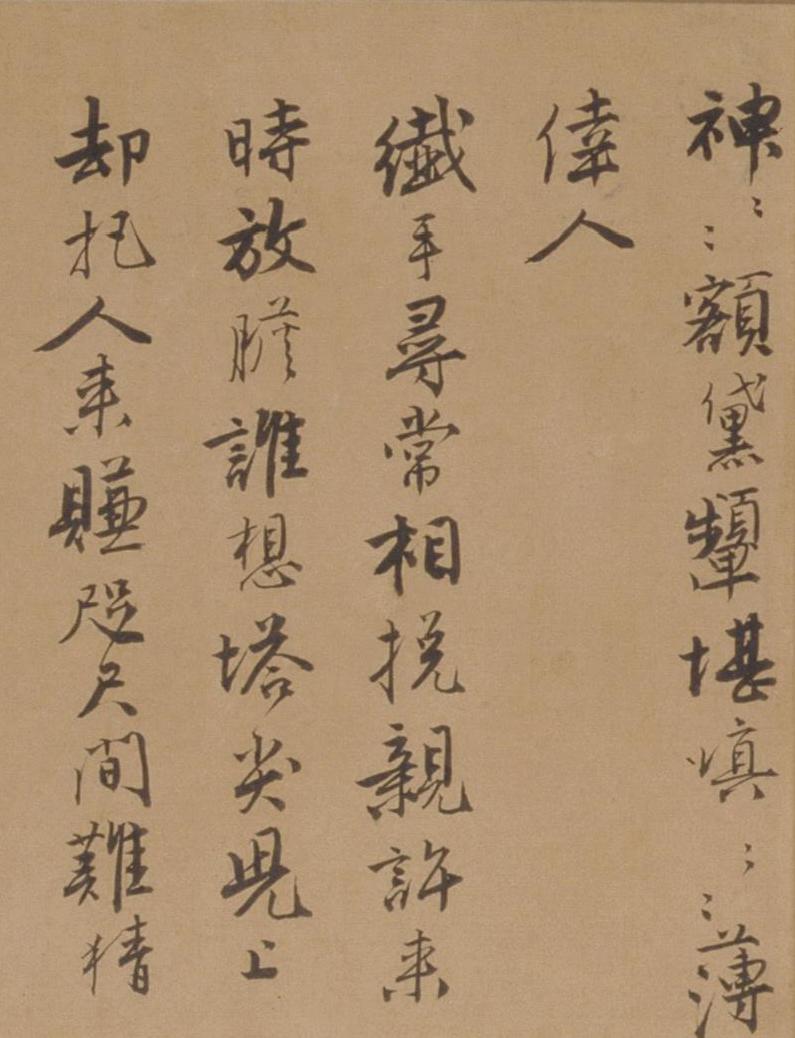 神〻〻額黛顰堪嗔〻〻薄
倖人
纖手尋常相挽親許来
時放膽誰想塔尖兒上
却把人来賺咫尺間難猜